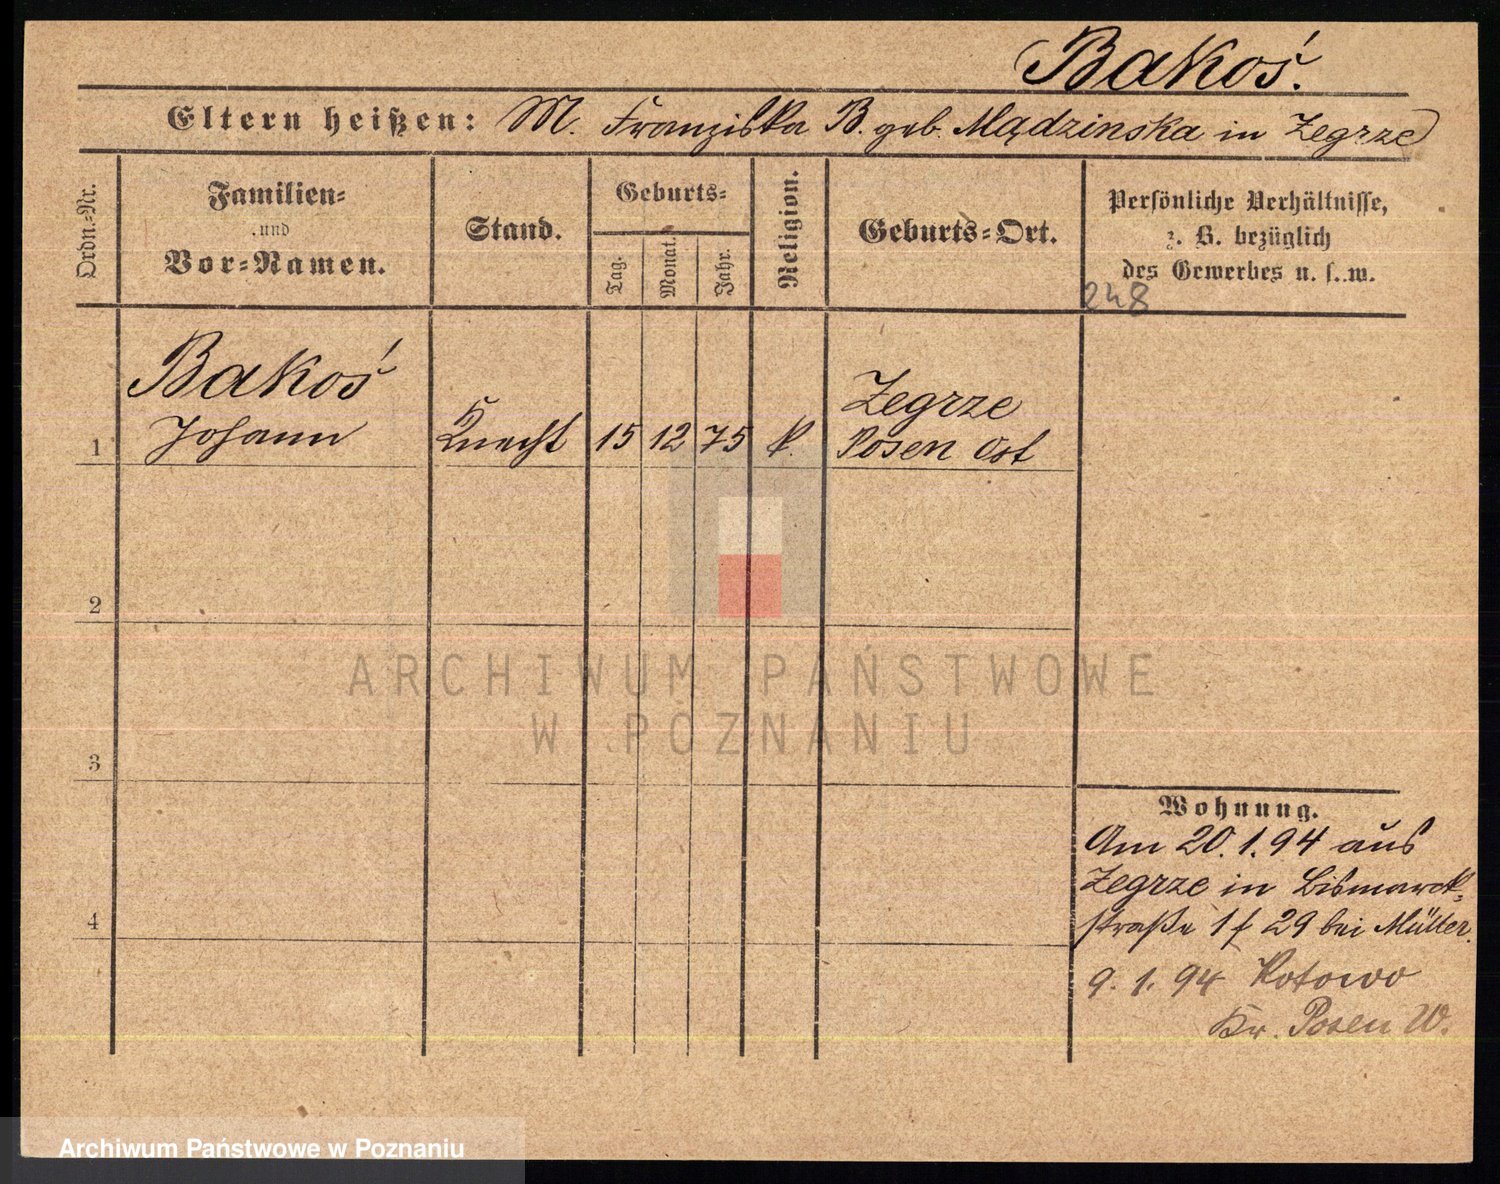 Bakoś.
Eltern heißen: M. Franziska B. geb. Mądzinska in Zegrze
Ordn.-Nr.
Familien-
und
Vor-Namen.
Stand.
Geburts-
Tag.
Monat.
Jahr.
Religion.
Geburts-Ort.
Persönliche Verhältnisse,
z. B. bezüglich
des Gewerbes u. s. w.
248
1
Bakoś
Johann
Knecht
15
12
75
k.
Zegrze
Posen Ost
2
3
4
Wohnung.
Am 20.1.94 aus
Zegrze in Bismarck-
straße 1 f 29 bei Müller.
9.1.94 Kotowo
Kr. Posen W.
ARCHIWUM PAŃSTWOWE
W POZNANIU
Archiwum Państwowe w Poznaniu